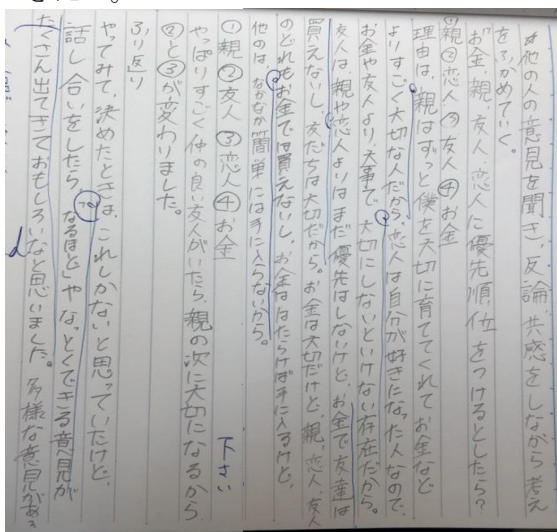 #他の人の意見を聞き、反論、共感をしながら考え
をふかめていく。
お金、親、友人、恋人に優先順位をつけるとしたら?
①親②恋人③友人④お金
理由は、親はずっと僕を大切に育ててくれてお金など
よりすごく大切な人だから。恋人は自分が好きになった人なので、
お金や友人より、大事で、大切にしないといけない存在だから。
友人は、親や恋人よりはまだ優先はしないけど、お金で友達は
買えないし、友だちは大切だから。お金は大切だけど、親、恋人、友人
のどれもお金では買えないし、お金ははたらけば手に入るけど、
他のは、なかなか簡単には手に入らないから。
①親②友人③恋人④お金 下さい
やっぱりすごく仲の良い友人がいたら、親の次に大切になるから
②と③が変わりました。
ふり返り
やってみて、決めたときは、これしかないと思っていたけど、
話し合いをしたら、「なるほど」や、なっとくできる意見が
たくさん出てきておもしろいなと思いました。多様な意見があ